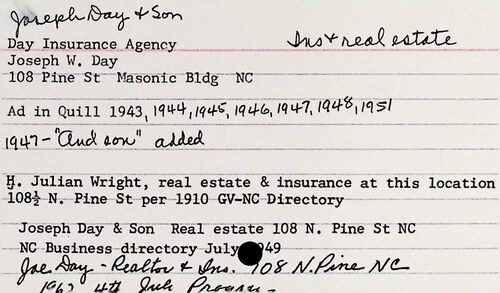 Joseph Day & Son
Day Insurance Agency
Ins & real estate
Joseph W. Day
108 Pine St Masonic Bldg NC
Ad in Quill 1943, 1944, 1945, 1946, 1947, 1948, 1951
1947 - "And son" added
H. Julian Wright, real estate & insurance at this location
108½ N. Pine St per 1910 GV-NC Directory
Joseph Day & Son Real estate 108 N. Pine St NC
NC Business directory July 49
Joe Day - Realtor & Ins. 108 N. Pine NC
4th July Program -